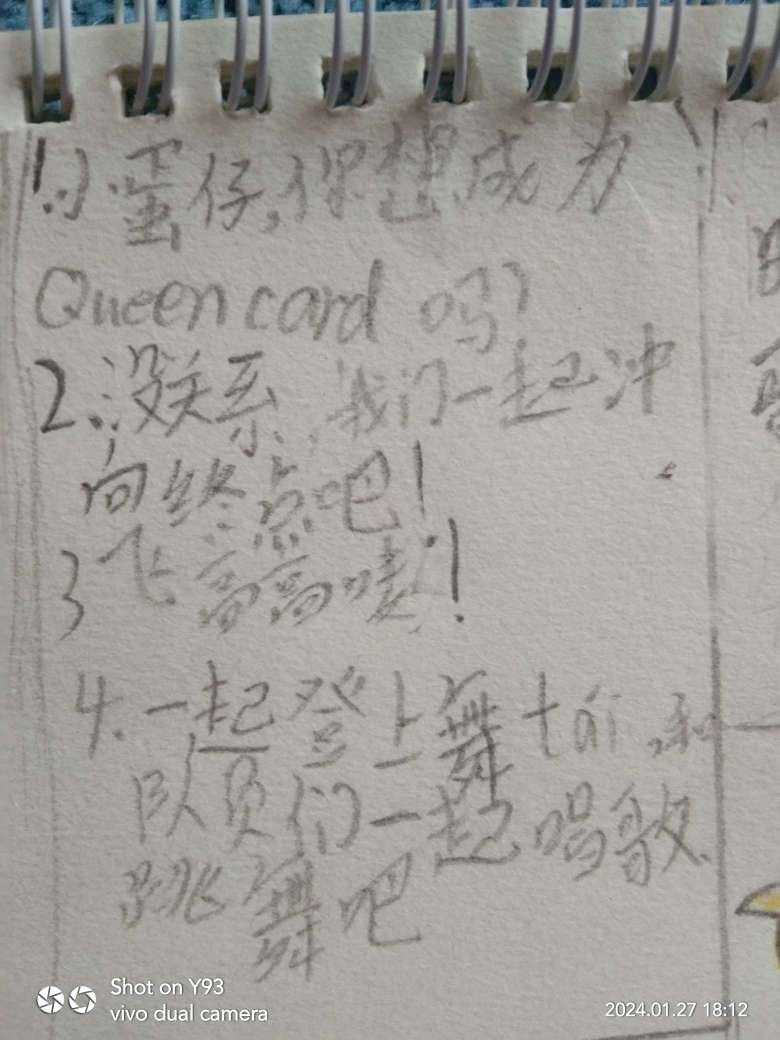 1.) 蛋仔,你想成为
Queencard 吗?
2.没关系,我们一起冲
向终点吧!
3 飞高高喽!
4.一起登上舞tái,和
队员们一起唱歌
跳舞吧
Shot on Y93
vivo dual camera
2024.01.27 18:12